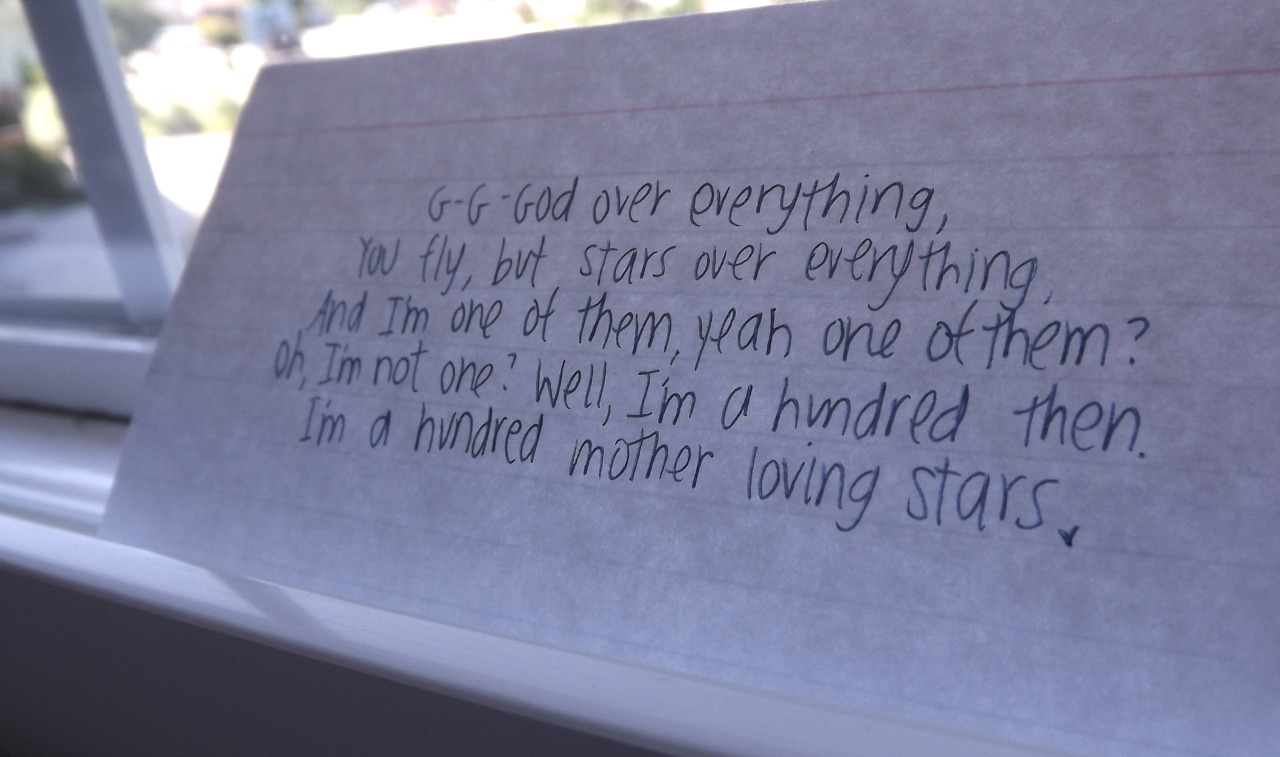 G-G-God over everything,
You fly, but stars over everything,
And I'm one of them, yeah one of them?
Oh, I'm not one? Well, I'm a hundred then.
I'm a hundred mother loving stars.